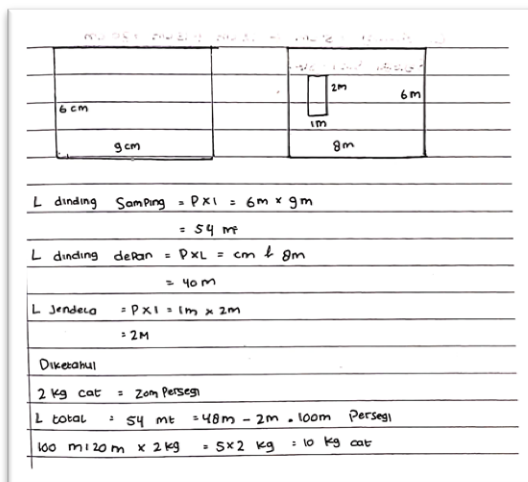 2m
6m
6 cm
1m
9 cm
8m
L dinding Samping = P x l = 6m x 9m
= 54 m²
L dinding depan = P x L = cm 8m
= 40 m
L Jendela = P x l = 1m x 2m
= 2M
Diketahui
2 kg cat = 20m Persegi
L total = 54 mt = 48m - 2m . 100m Persegi
100 m : 20 m x 2 kg = 5 x 2 kg = 10 kg cat